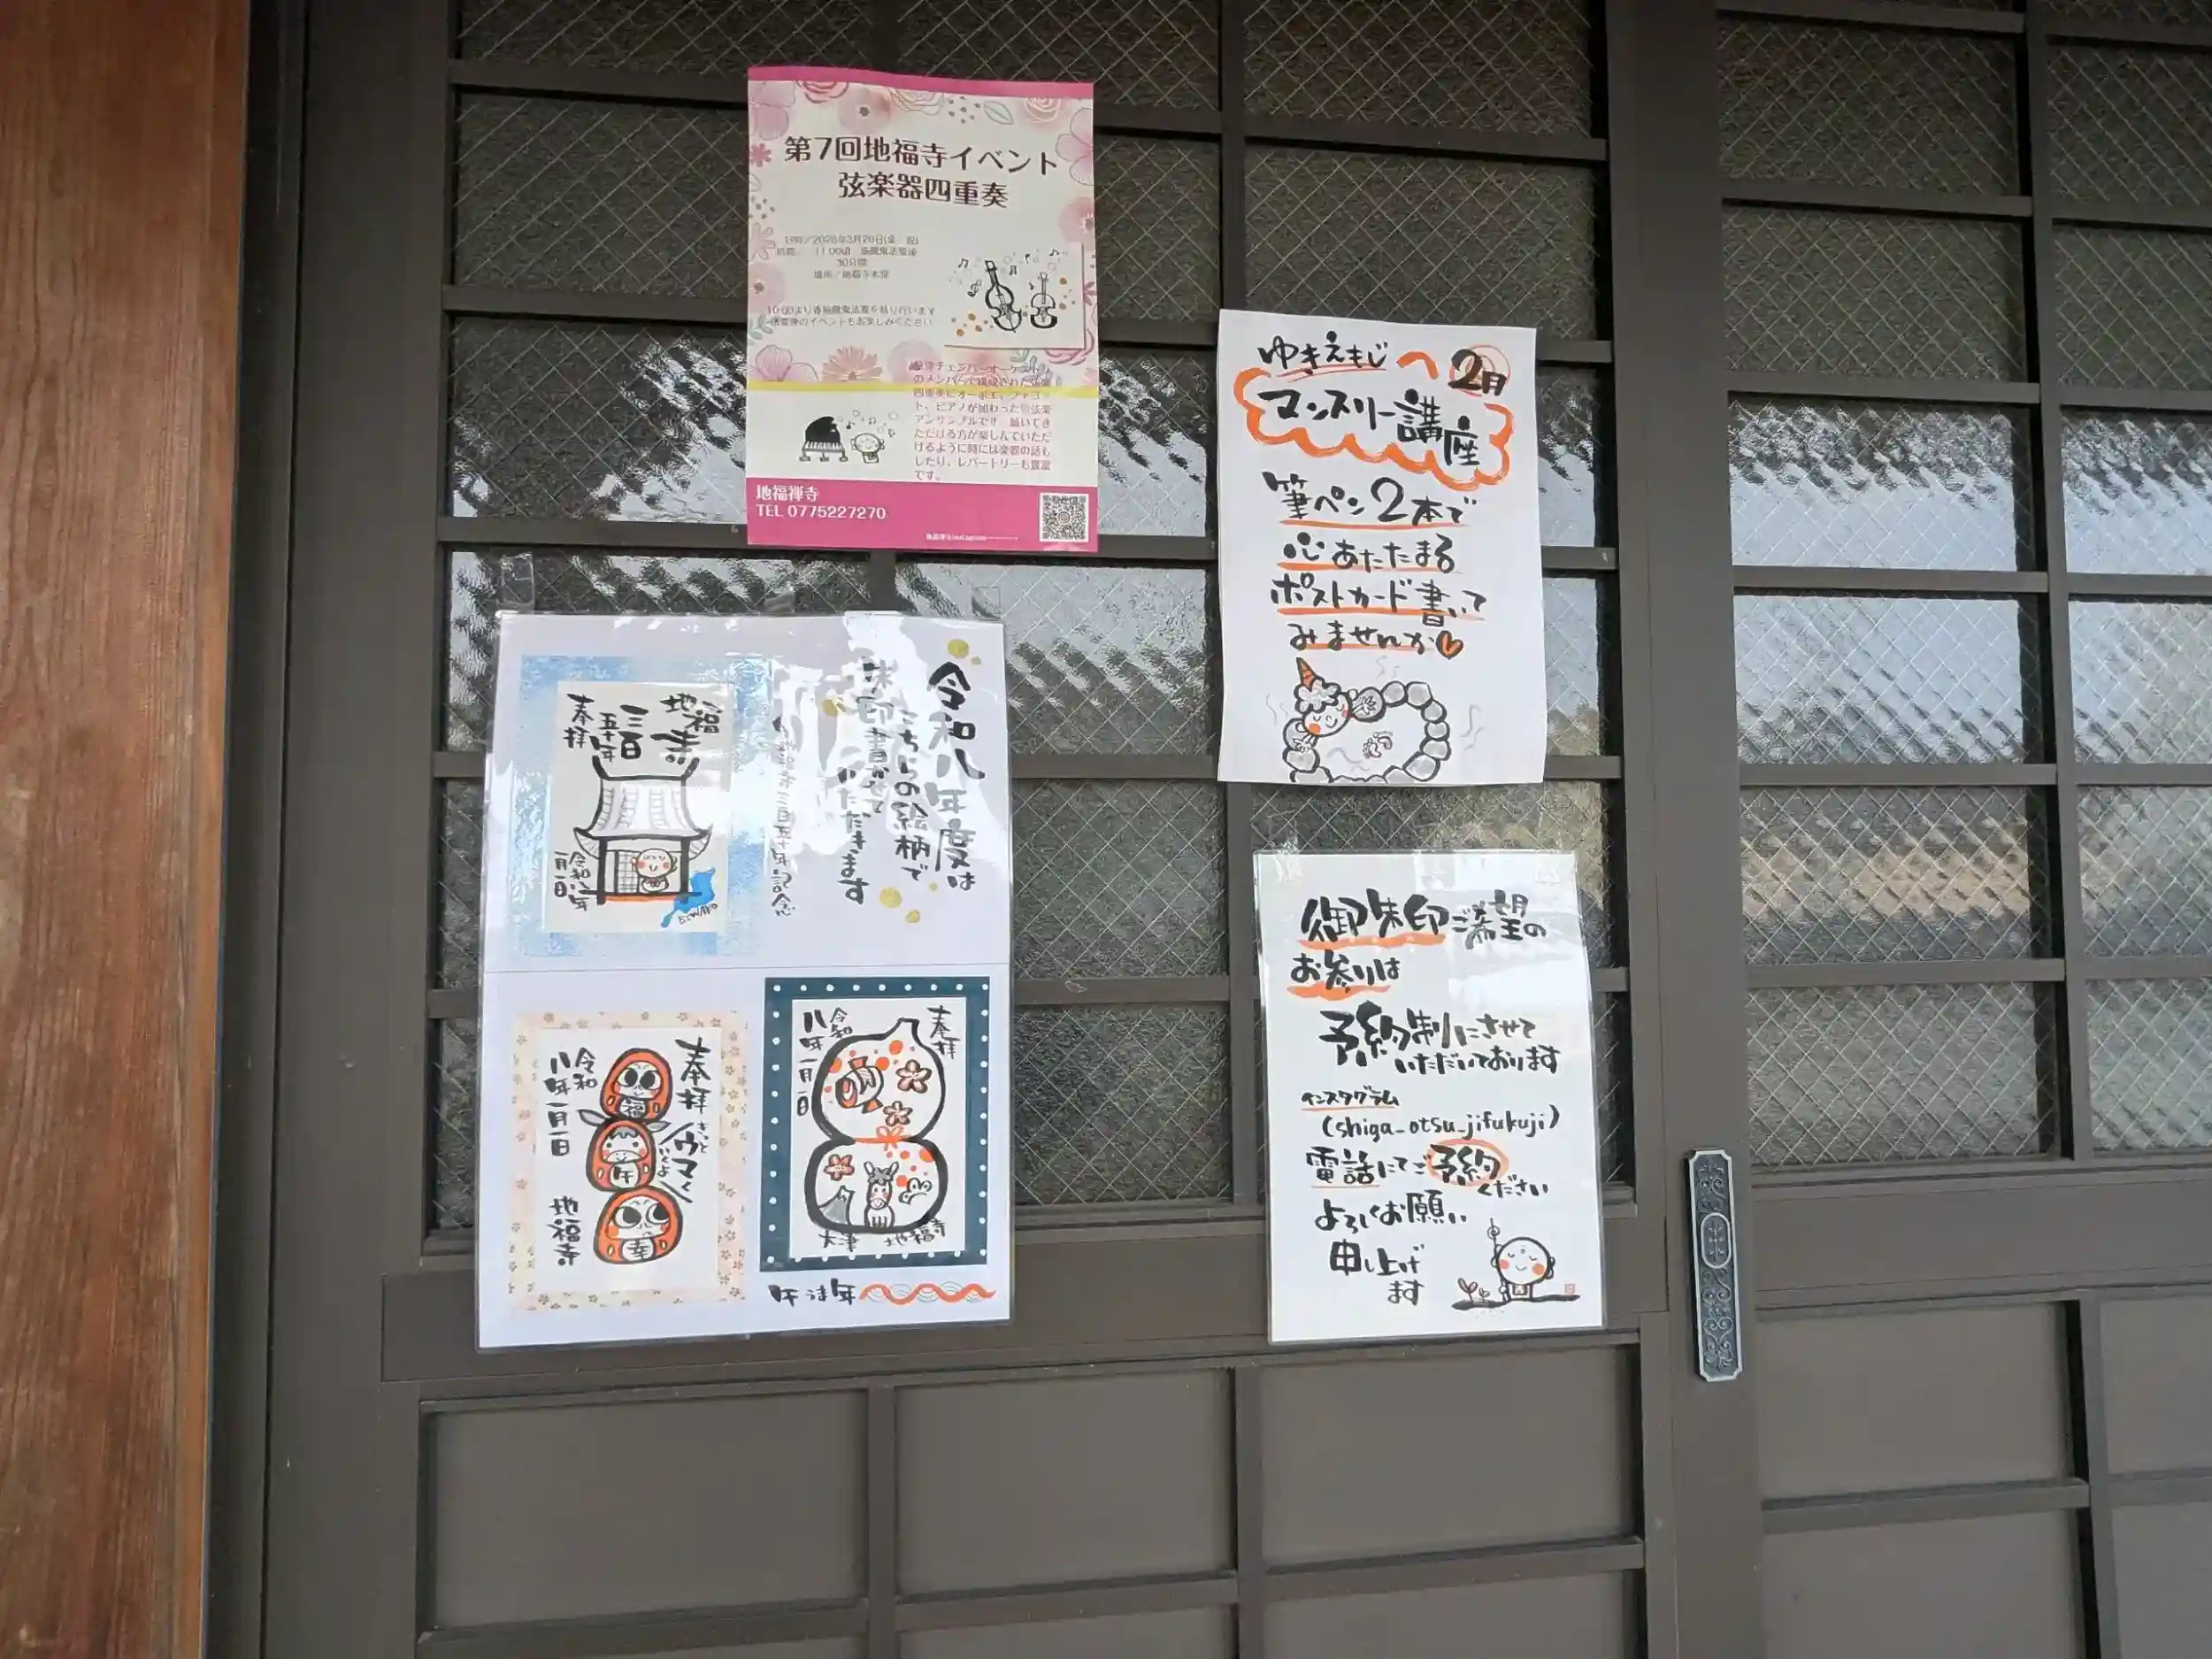 第7回地福寺イベント
弦楽器四重奏
日時／2026年3月20日(金・祝)
時間／ 11:00頃 施餓鬼法要後
30分間
場所／地福寺本堂
10:00より春施餓鬼法要を執り行います
法要後のイベントもお楽しみください
のメンバーで構成された弦楽
四重奏にオーボエ、ファゴッ
ト、ピアノが加わった管弦楽
アンサンブルです 聴いてき
ただける方が楽しんでいただ
けるように時には楽器の話も
したり、レパートリーも豊富
です。
地福禅寺
TEL 0775227270
ゆきえもじ
2月
マンスリー講座
筆ペン2本で
心あたたまる
ポストカード書いて
みませんか
令和八年度は
こちらの絵柄で
朱印書かせて
いただきます
地福寺三百五十年記念
地福寺
三百
五十年
奉拝
令和八年
一月一日
BIWAKO
奉拝
きっと
ウマく
いくよ
令和
八年一月一日
地福寺
福
午
幸
奉拝
令和
八年一月一日
大津 地福寺
午うま年
御朱印ご希望の
お参りは
予約制にさせて
いただいております
インスタグラム
(shiga_otsu_jifukuji)
電話にてご予約
ください
よろしくお願い
申し上げ
ます